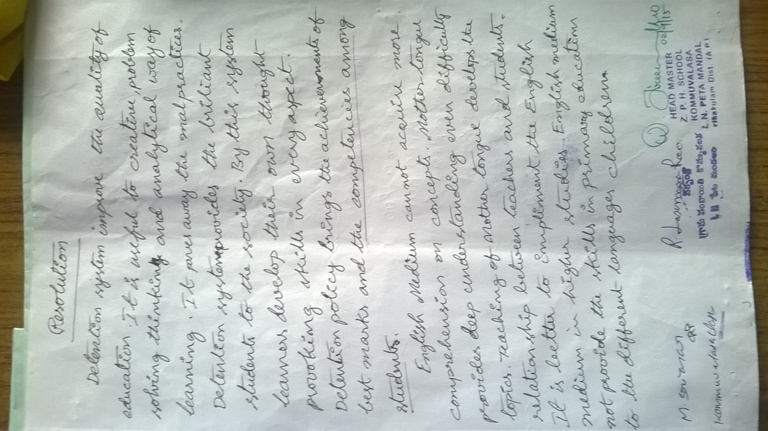 Resolution
Detention system improve the quality of
education. It is useful to creative, problem
solving thinking and analytical way of
learning. It put away the malpractices.
Detention system provides the brilliant
students to the society. By this system
learners develop their own thought
provoking skills in every aspect.
Detention policy brings the achievements of
best marks and the competencies among
students.
English Medium cannot acquire more
comprehension on concepts. Mother-tongue
provides deep understanding even difficulty
topics. Teaching of mother tongue develops the
relationship between teachers and students.
It is better to implement the English
medium in higher studies. English medium
not provide the skills in primary education
to the different languages children.
HEAD MASTER
Z. P. H. SCHOOL
KOMMUVALASA
L.N. PETA MANDAL
rikakulam Dist. (A P)